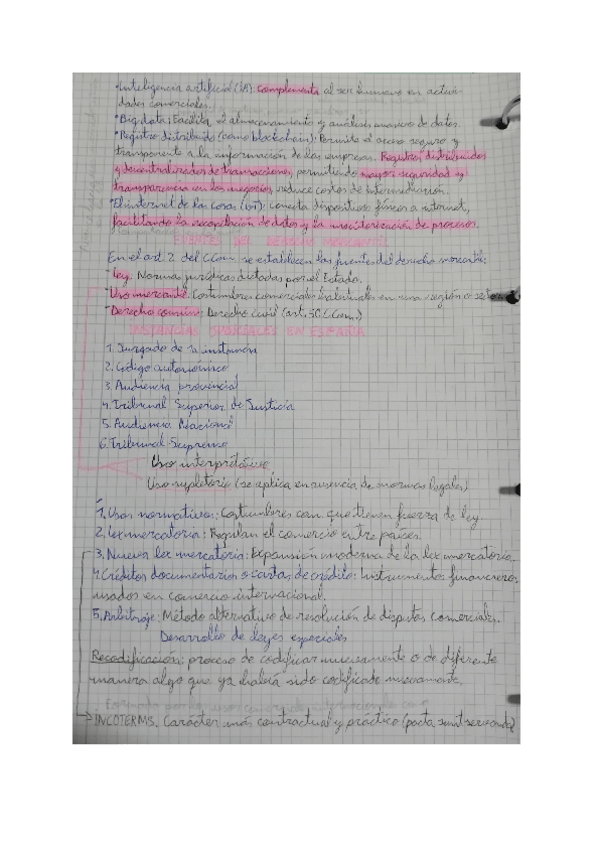 •Inteligencia artificial (IA): Complementa al ser humano en activi-
dades comerciales.
•Big data: Facilita el almacenamiento y análisis masivo de datos.
•Registro distribuido (como blockchain): Permite el acceso seguro y
transparente a la información de las empresas. Registros distribuidos
y descentralizados de transacciones, permitiendo mayor seguridad y
transparencia en los negocios, reduce costos de intermediación.
•El internet de las cosas (IoT): conecta dispositivos físicos a internet,
facilitando la recopilación de datos y la
FUENTES DEL DERECHO MERCANTIL
En el art 2 del CCom se establecen las fuentes del derecho mercantil:
•Ley: Normas jurídicas dictadas por el Estado.
•Uso mercantil: Costumbres comerciales habituales en una región o sector
•Derecho común: Derecho Civil (art. 50 C.Com.)
INSTANCIAS EN ESPAÑA
1. Juzgado de 1ª instancia
2. Código autonómico
3. Audiencia provincial
4. Tribunal Superior de Justicia
5. Audiencia Nacional
6. Tribunal Supremo
Uso interpretativo
Uso supletorio (se aplica en ausencia de normas legales)
1. Usos normativos: Costumbres con que tienen fuerza de ley
2. Lex mercatoria: Regulan el comercio entre países.
3. Nueva lex mercatoria: Expansión moderna de la lex mercatoria.
4. Créditos documentarios o cartas de crédito: Instrumentos financieros
usados en comercio internacional.
5. Arbitraje: Método alternativo de resolución de disputas comerciales.
Desarrollo de leyes especiales
Recodificación: proceso de codificar nuevamente o de diferente
manera algo que ya había sido codificado nuevamente.
INCOTERMS. Carácter más contractual y práctico (pacta sunt servanda)